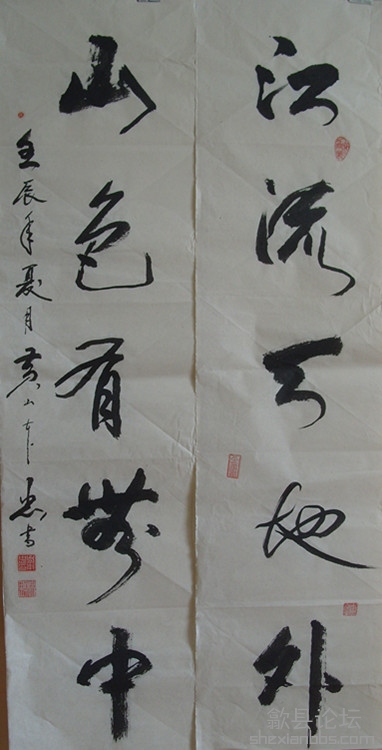 江流天地外
山色有無中
壬辰年夏月黄山
書
歙县论坛
shexianbbs.com